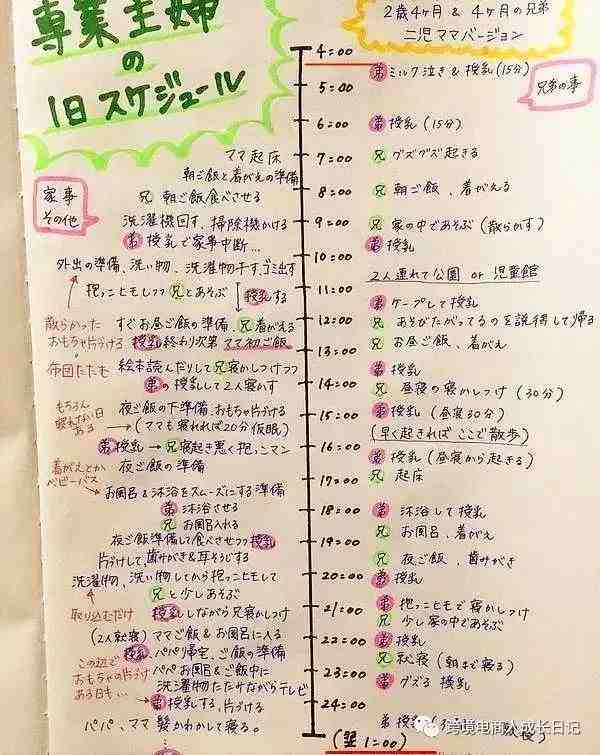 専業主婦
の
1日スケジュール
2歳4ヶ月 & 4ヶ月の兄弟
二児ママバージョン
兄弟の事
家事
その他
4:00
弟 ミルク泣き & 授乳 (15分)
5:00
6:00
弟 授乳 (15分)
ママ起床
7:00
兄 グズグズ起きる
朝ご飯と着がえの準備
兄 朝ご飯食べさせる
8:00
兄 朝ご飯、着がえる
洗濯機回す、掃除機かける
9:00
兄 家の中であそぶ (散らかす)
弟 授乳で家事中断...
弟 授乳
外出の準備、洗い物、洗濯物干す、ゴミ出す
10:00
2人連れて公園 or 児童館
抱っこヒモしつつ兄とあそぶ
授乳する
11:00
弟 ケープして授乳
散らかった
おもちゃ片づける
すぐお昼ご飯の準備、兄着がえる
12:00
兄 あそびたがってるのを説得して帰る
授乳終わり次第 ママ初ご飯
兄 お昼ご飯、着がえ
13:00
布団たたむ
絵本読んだりして兄寝かしつけつつ
弟 授乳
弟の授乳して2人寝かす
14:00
兄 昼寝の寝かしつけ (30分)
もちろん
眠れない日
ある
夜ご飯の下準備、おもちゃ片づける
15:00
弟 授乳 (昼寝30分)
→(ママも寝れれば20分仮眠)
(早く起きればここで散歩)
弟 授乳 → 兄寝起き悪く抱っこマン
16:00
弟 授乳 (昼寝から起きる)
着がえとか
ベビーバス
夜ご飯の準備
兄 起床
17:00
お風呂&沐浴をスムーズにする準備
弟 沐浴させる
18:00
弟 沐浴して授乳
兄 お風呂入れる
兄 お風呂、着がえ
夜ご飯準備して食べさせつつ授乳
19:00
片づけして、歯みがき&耳そうじする
兄 夜ご飯、歯みがき
洗濯物、洗い物してから抱っこヒモして
20:00
弟 授乳
兄と少しあそぶ
取り込むだけ
授乳しながら兄寝かしつけ
21:00
弟 抱っこヒモで寝かしつけ
兄 少し家の中であそぶ
(2人就寝) ママご飯&お風呂に入る
22:00
弟 授乳
この辺で
おもちゃの片づけ
ある日も...
授乳、パパ帰宅、ご飯の準備
兄 就寝 (朝まで寝る)
パパお風呂&ご飯中に
23:00
弟 グズる 授乳
洗濯物たたみながらテレビ
弟 授乳する、片づけ
24:00
パパ、ママ 髪かわかして寝る。
弟 授乳
(翌 1:00)
跨境电商人成长日记